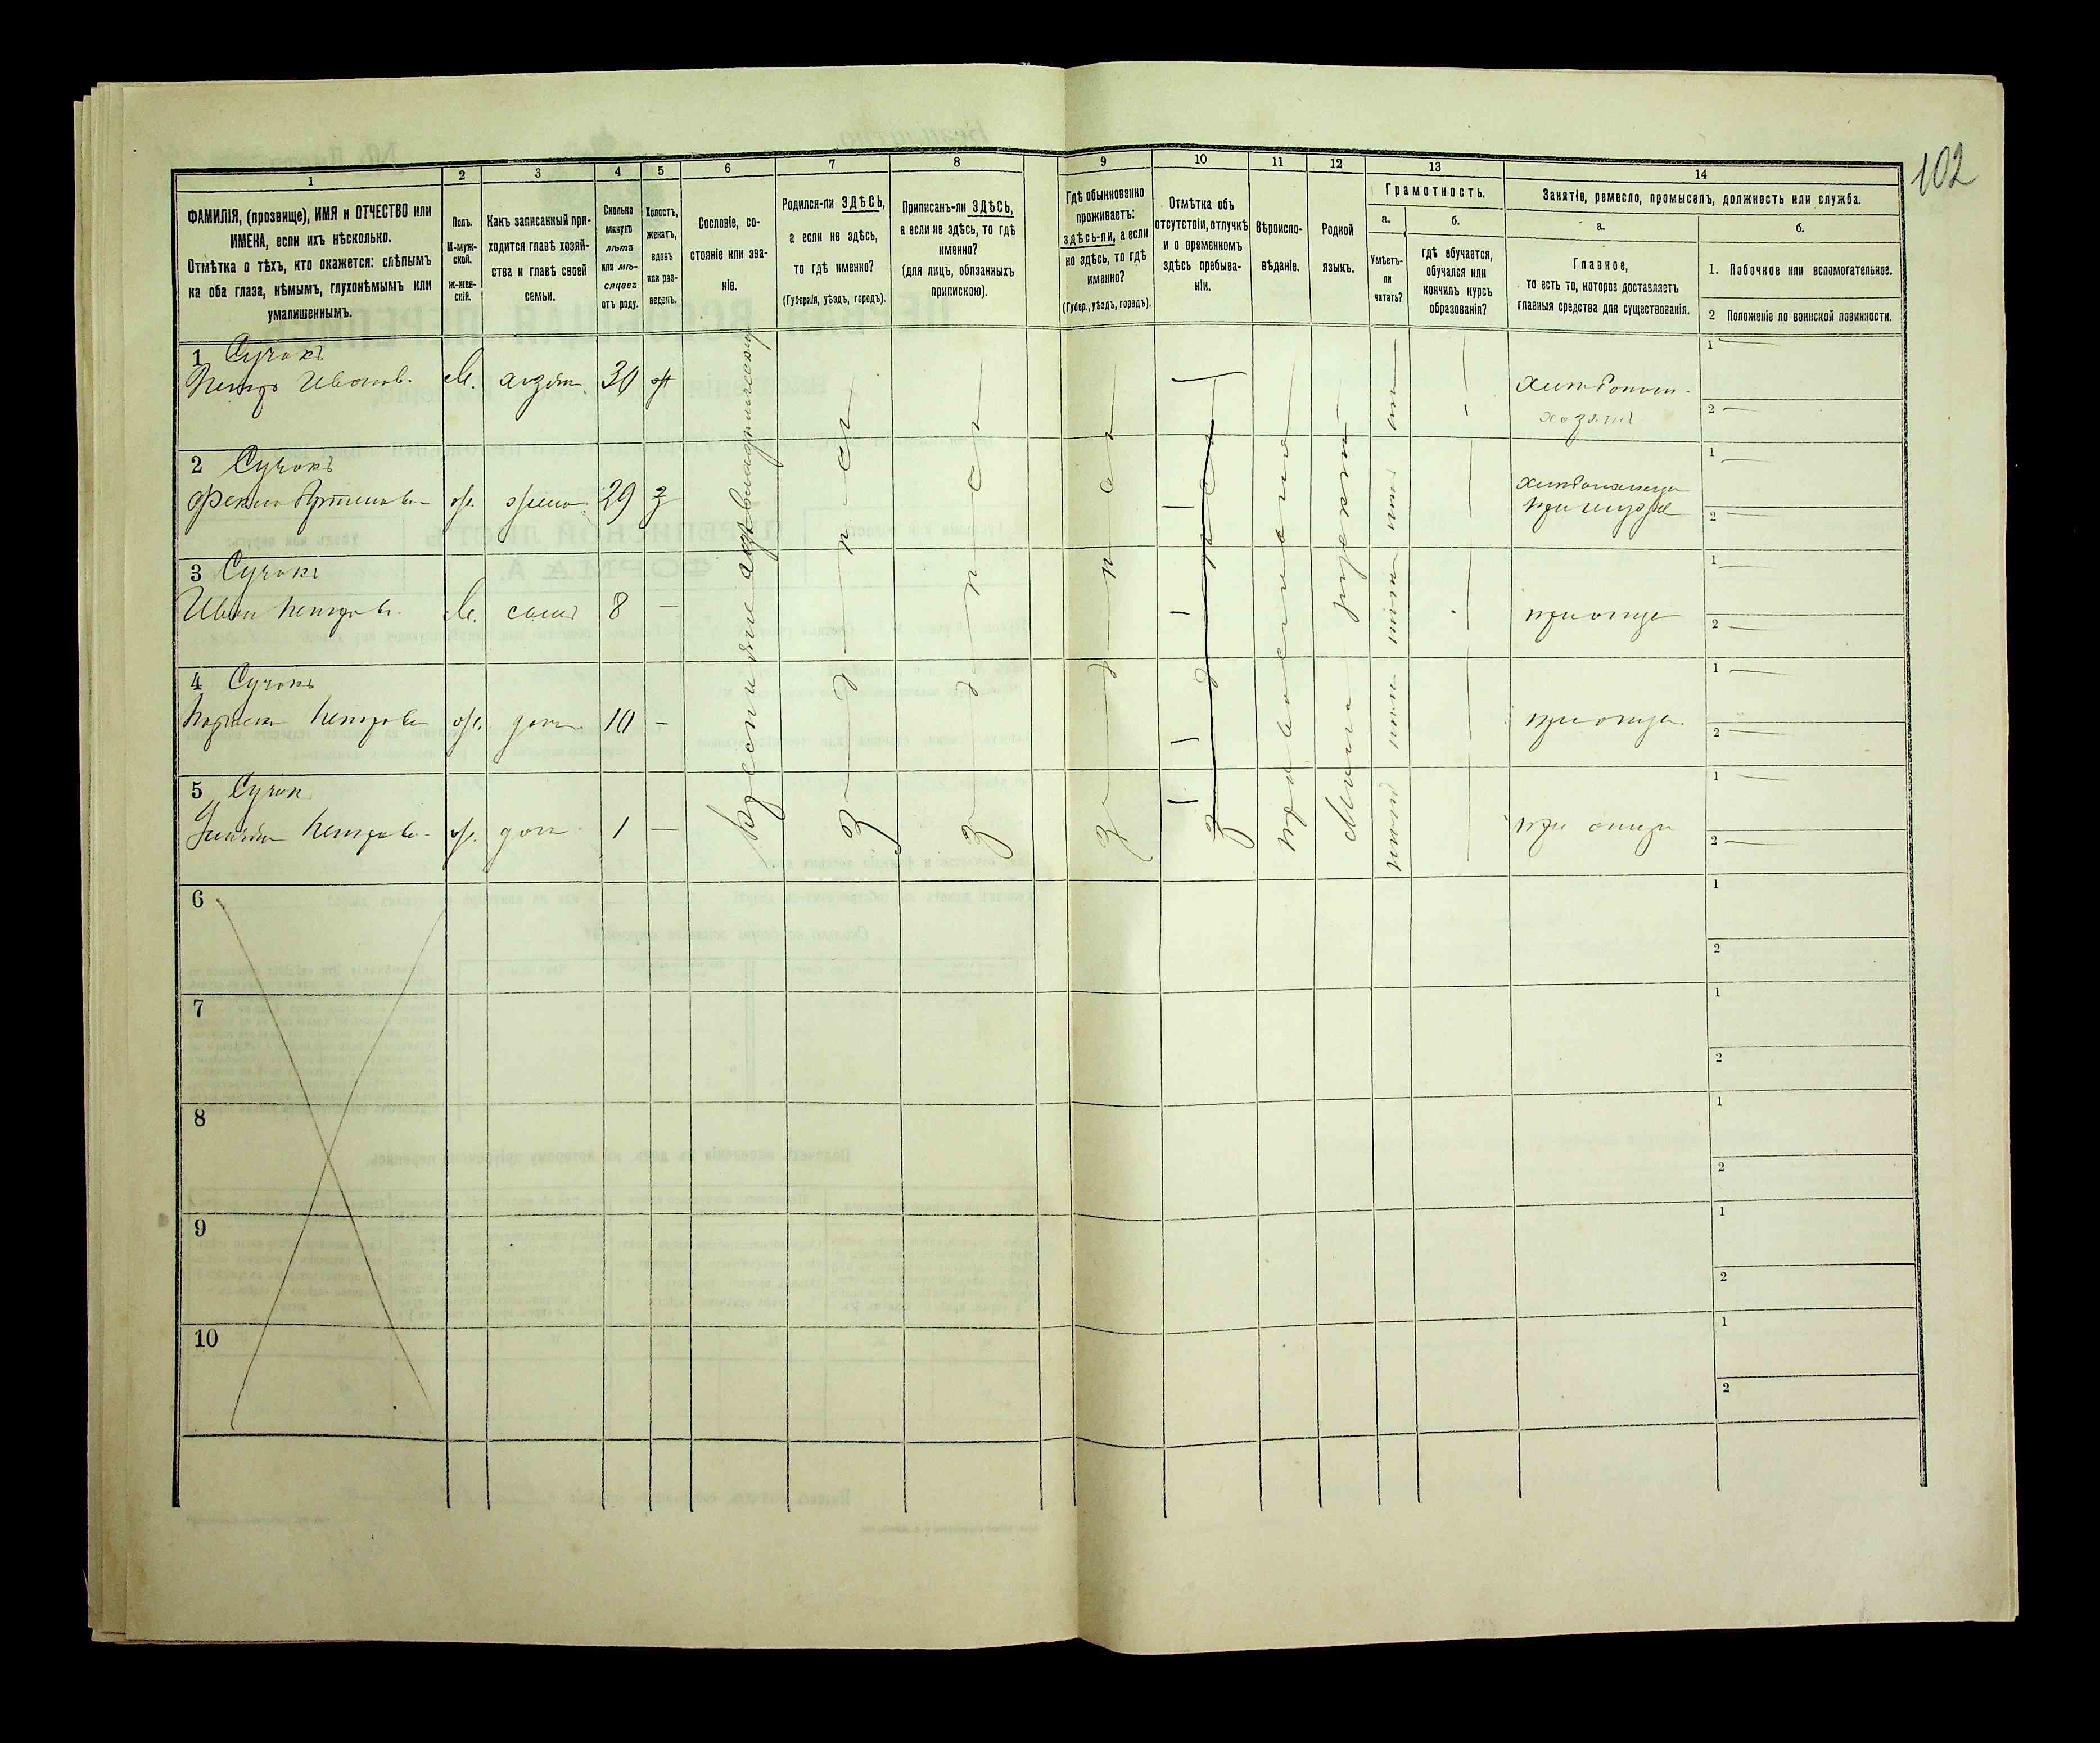 102
1
2
3
4
5
6
7
8
9
10
11
12
13
14
ФАМИЛІЯ, (прозвище), ИМЯ и ОТЧЕСТВО или
ИМЕНА, если ихъ нѣсколько.
Отмѣтка о тѣхъ, кто окажется: слѣпымъ
на оба глаза, нѣмымъ, глухонѣмымъ или
умалишеннымъ.
Полъ.
М-муж-
ской.
Ж-жен-
скій.
Какъ записанный при-
ходится главѣ хозяй-
ства и главѣ своей
семьи.
Сколько
минуло
лѣтъ
или мѣ-
сяцевъ
отъ роду.
Холостъ,
женатъ,
вдовъ
или раз-
веденъ.
Сословіе, со-
стояніе или зва-
ніе.
Родился-ли ЗДѢСЬ,
а если не здѣсь,
то гдѣ именно?
(Губернія, уѣздъ, городъ).
Приписанъ-ли ЗДѢСЬ,
а если не здѣсь, то гдѣ
именно?
(для лицъ, обязанныхъ
припискою).
Гдѣ обыкновенно
проживаетъ:
здѣсь-ли, а если
не здѣсь, то гдѣ
именно?
(Губер., уѣздъ, городъ).
Отмѣтка объ
отсутствіи, отлучкѣ
и о временномъ
здѣсь пребыва-
ніи.
Вѣроиспо-
вѣданіе.
Родной
языкъ.
Грамотность.
а.
Умѣетъ-
ли
читать?
б.
гдѣ обучается,
обучался или
кончилъ курсъ
образованія?
Занятіе, ремесло, промыселъ, должность или служба.
а.
Главное,
то есть то, которое доставляетъ
главныя средства для существованія.
б.
1. Побочное или вспомогательное.
2 Положеніе по воинской повинности.
1 Сучокъ
Петръ Иванов. М. хозяин 30 ж
хлѣбопаш.
хозяинъ
1
2
2 Сучокъ
Фекла ж. жена 29 з
при мужѣ
1
2
3 Сучокъ
Иван Петров. М. сынъ 8 —
при отце
1
2
4 Сучокъ
Петрова ж. доч 10 —
при отце
1
2
5 Сучок
Петрова ж. доч 1 —
при отце
1
2
здѣсь
здѣсь
здѣсь
здѣсь
православное
6
1
2
7
1
2
8
1
2
9
1
2
10
1
2